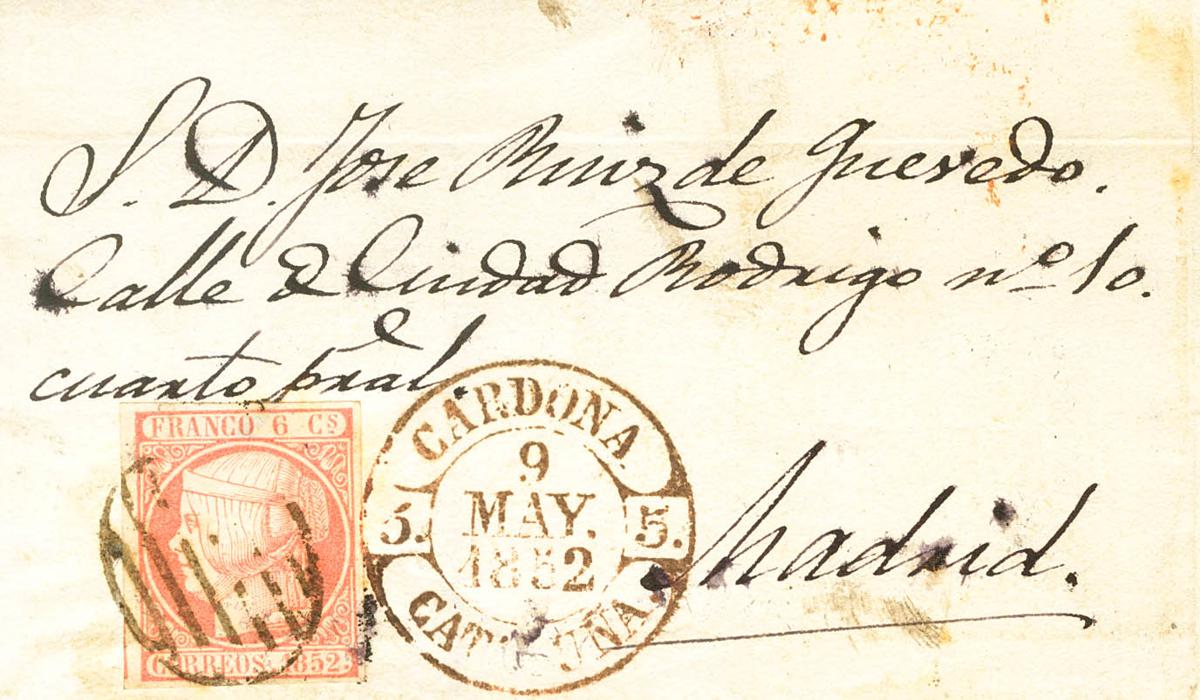 S. D. Jose Ruiz de Quevedo.
Calle de Ciudad Rodrigo nº 10.
cuarto pral.
Madrid.
FRANCO 6 Cs
CORREOS. 1852.
CARDONA.
9
MAY.
1852
5. 5.
CATALUÑA.